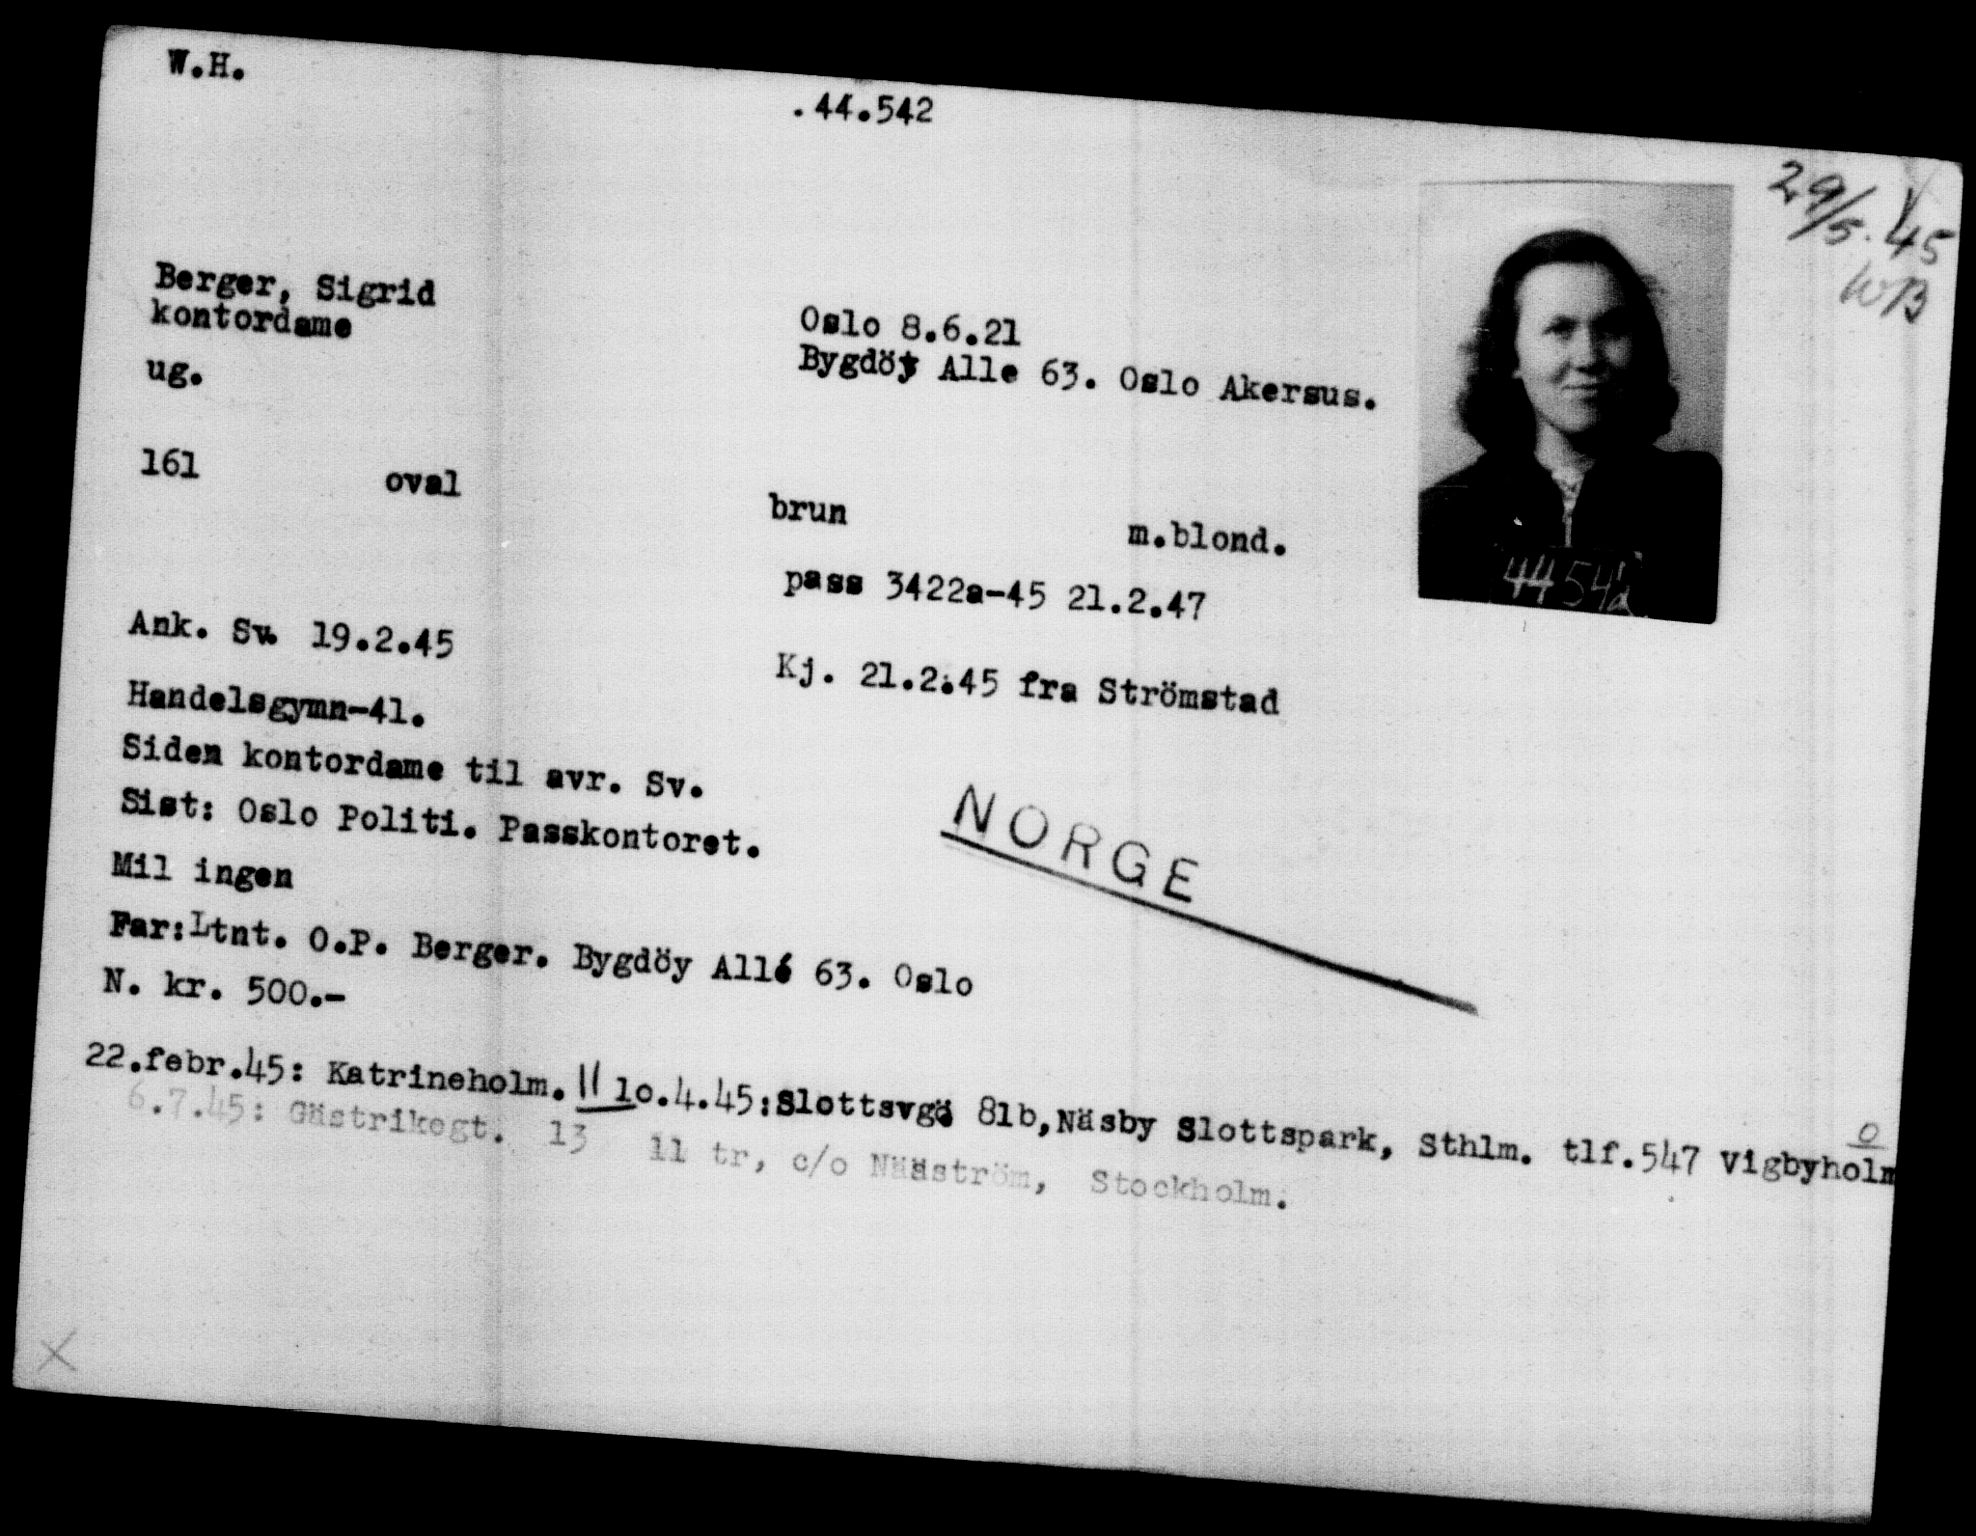 W.H.
.44.542
29/5.45
WB
Berger, Sigrid
kontordame
Oslo 8.6.21
Bygdöy Alle 63. Oslo Akersus.
ug.
161 oval
brun m.blond.
44542
pass 3422a-45 21.2.47
Ank. Sv. 19.2.45
Kj. 21.2.45 fra Strömstad
Handelsgymn-41.
Siden kontordame til avr. Sv.
Sist: Oslo Politi. Passkontoret.
NORGE
Mil ingen
Far:Ltnt. O.P. Berger. Bygdöy Allé 63. Oslo
N. kr. 500.-
22.febr.45: Katrineholm. || 10.4.45:Slottsvg 81b,Näsby Slottspark, Sthlm. tlf.547 Vigbyholm
6.7.45: Gästrikegt. 13 11 tr, c/o Nääström, Stockholm.